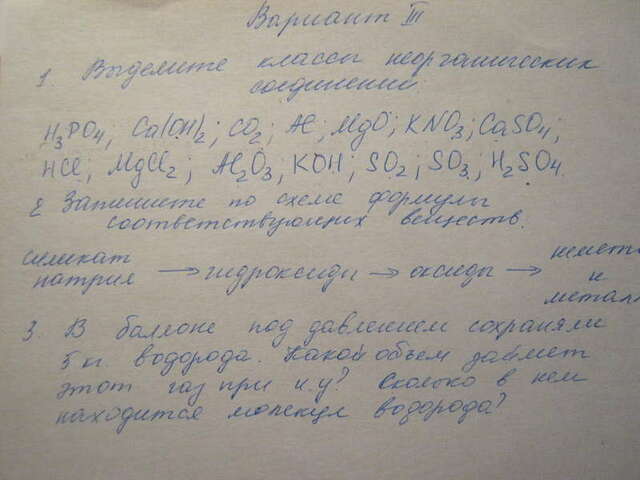 Вариант III
1. Выделите классы неорганических
соединений.
H3PO4; Ca(OH)2; CO2; Al; MgO; KNO3; CaSO4;
HCl; MgCl2; Al2O3; KOH; SO2; SO3; H2SO4.
2 Запишите по схеме формулы
соответствующих веществ.
силикат натрия → гидроксиды → оксиды → немета и метал
3. В баллоне под давлением сохраняли
5 кг. водорода. Какой объем займет
этот газ при н.у? Сколько в нем
находится молекул водорода?